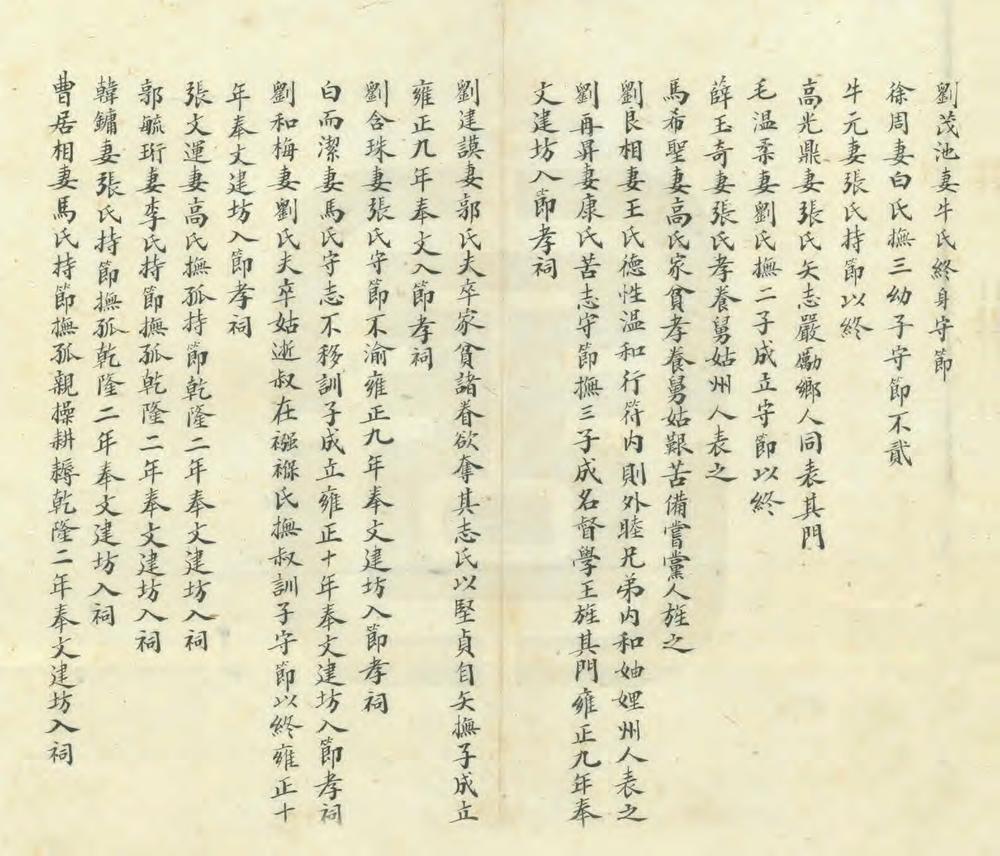 劉茂池妻牛氏終身守節
徐周妻白氏撫三幼子守節不貳
牛元妻張氏持節以終
高光鼎妻張氏矢志嚴勵鄉人同表其門
毛温柔妻劉氏撫二子成立守節以終
薛玉奇妻張氏孝養舅姑州人表之
馬希聖妻高氏家貧孝養舅姑艱苦備嘗黨人旌之
劉良相妻王氏德性温和行符内則外睦兄弟内和妯娌州人表之
劉再昇妻康氏苦志守節撫三子成名督學王旌其門雍正九年奉
文建坊入節孝祠
劉建謨妻郭氏夫卒家貧諸眷欲奪其志氏以堅貞自矢撫子成立
雍正九年奉文入節孝祠
劉含珠妻張氏守節不渝雍正九年奉文建坊入節孝祠
白而潔妻馬氏守志不移訓子成立雍正十年奉文建坊入節孝祠
劉和梅妻劉氏夫卒姑逝叔在襁褓氏撫叔訓子守節以終雍正十
年奉文建坊入節孝祠
張文運妻高氏撫孤持節乾隆二年奉文建坊入祠
郭毓珩妻李氏持節撫孤乾隆二年奉文建坊入祠
韓鏞妻張氏持節撫孤乾隆二年奉文建坊入祠
曹居相妻馬氏持節撫孤親操耕耨乾隆二年奉文建坊入祠